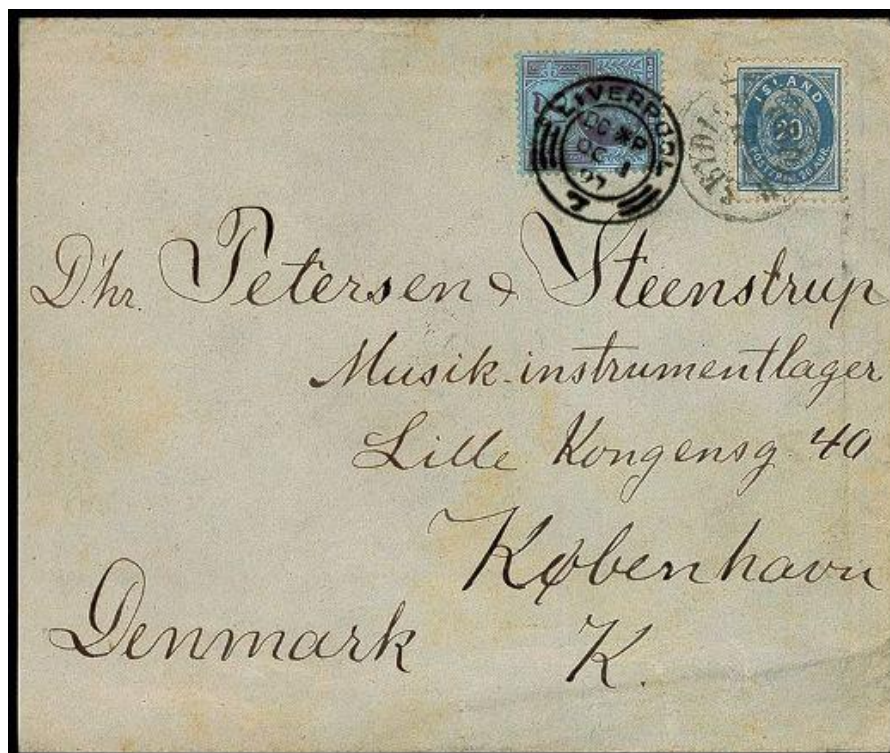 LIVERPOOL
DC 1
97
2
ISLAND
20
POSTFRIM 20 AUR.
D'hr. Petersen & Steenstrup
Musik-instrumentlager
Lille Kongensg. 40
København
K.
Denmark